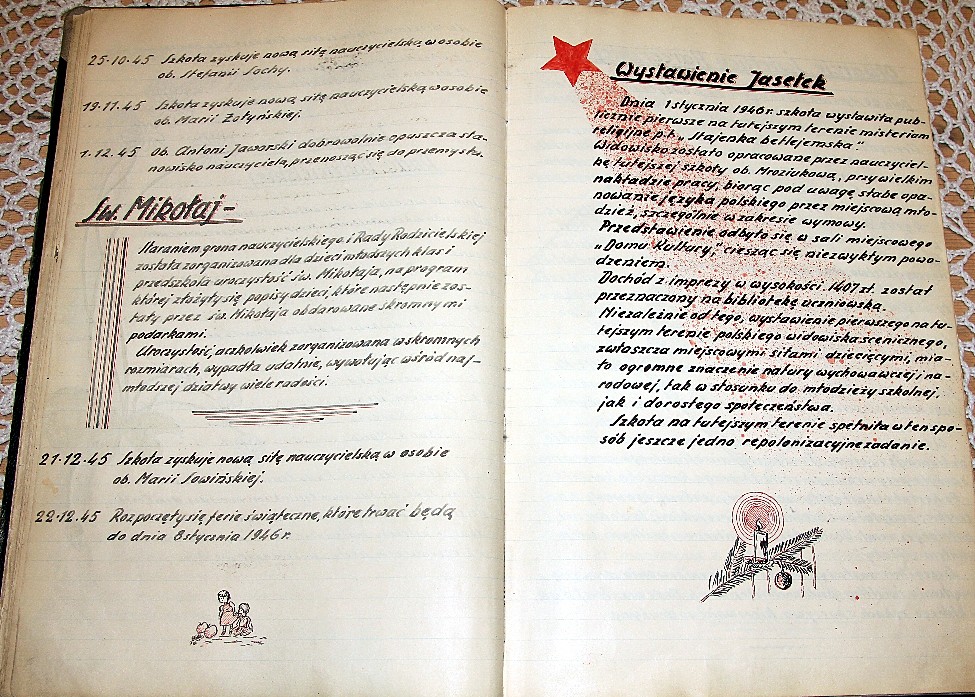 25.10.45 Szkoła zyskuje nową siłę nauczycielską w osobie
ob. Stefanii Sochy.
19.11.45 Szkoła zyskuje nową siłę nauczycielską w osobie
ob. Marii Żołyńskiej.
1.12.45 Ob. Antoni Jaworski dobrowolnie opuszcza sta-
nowisko nauczyciela, przenosząc się do przemysłu.
Św. Mikołaj-
Staraniem grona nauczycielskiego i Rady Rodzicielskiej
została zorganizowana dla dzieci młodszych klas i
przedszkola uroczystość św. Mikołaja, na program
której złożyły się popisy dzieci, które następnie zos-
tały przez św. Mikołaja obdarowane skromnymi
podarkami.
Uroczystość, aczkolwiek zorganizowana w skromnych
rozmiarach, wypadła udatnie, wywołując wśród naj-
młodszej dziatwy wiele radości.
21.12.45 Szkoła zyskuje nową siłę nauczycielską w osobie
ob. Marii Sowińskiej.
22.12.45 Rozpoczęły się ferie świąteczne, które trwać będą
do dnia 8 stycznia 1946 r.
Wystawienie Jasełek
Dnia 1 stycznia 1946 r. szkoła wystawiła pub-
licznie pierwsze na tutejszym terenie misterium
religijne p.t. „Stajenka betlejemska."
Widowisko zostało opracowane przez nauczyciel-
kę tutejszej szkoły ob. Mroziukową, przy wielkim
nakładzie pracy, biorąc pod uwagę słabe opa-
nowanie języka polskiego przez miejscową mło-
dzież, szczególnie w zakresie wymowy.
Przedstawienie odbyło się w sali miejscowego
„Domu Kultury", ciesząc się niezwykłym powo-
dzeniem.
Dochód z imprezy w wysokości 1407 zł. został
przeznaczony na bibliotekę uczniowską.
Niezależnie od tego, wystawienie pierwszego na tu-
tejszym terenie polskiego widowiska scenicznego,
zwłaszcza miejscowymi siłami dziecięcymi, mia-
ło ogromne znaczenie natury wychowawczej i na-
rodowej, tak w stosunku do młodzieży szkolnej,
jak i dorosłego społeczeństwa.
Szkoła na tutejszym terenie spełniła w ten spo-
sób jeszcze jedno repolonizacyjne zadanie.